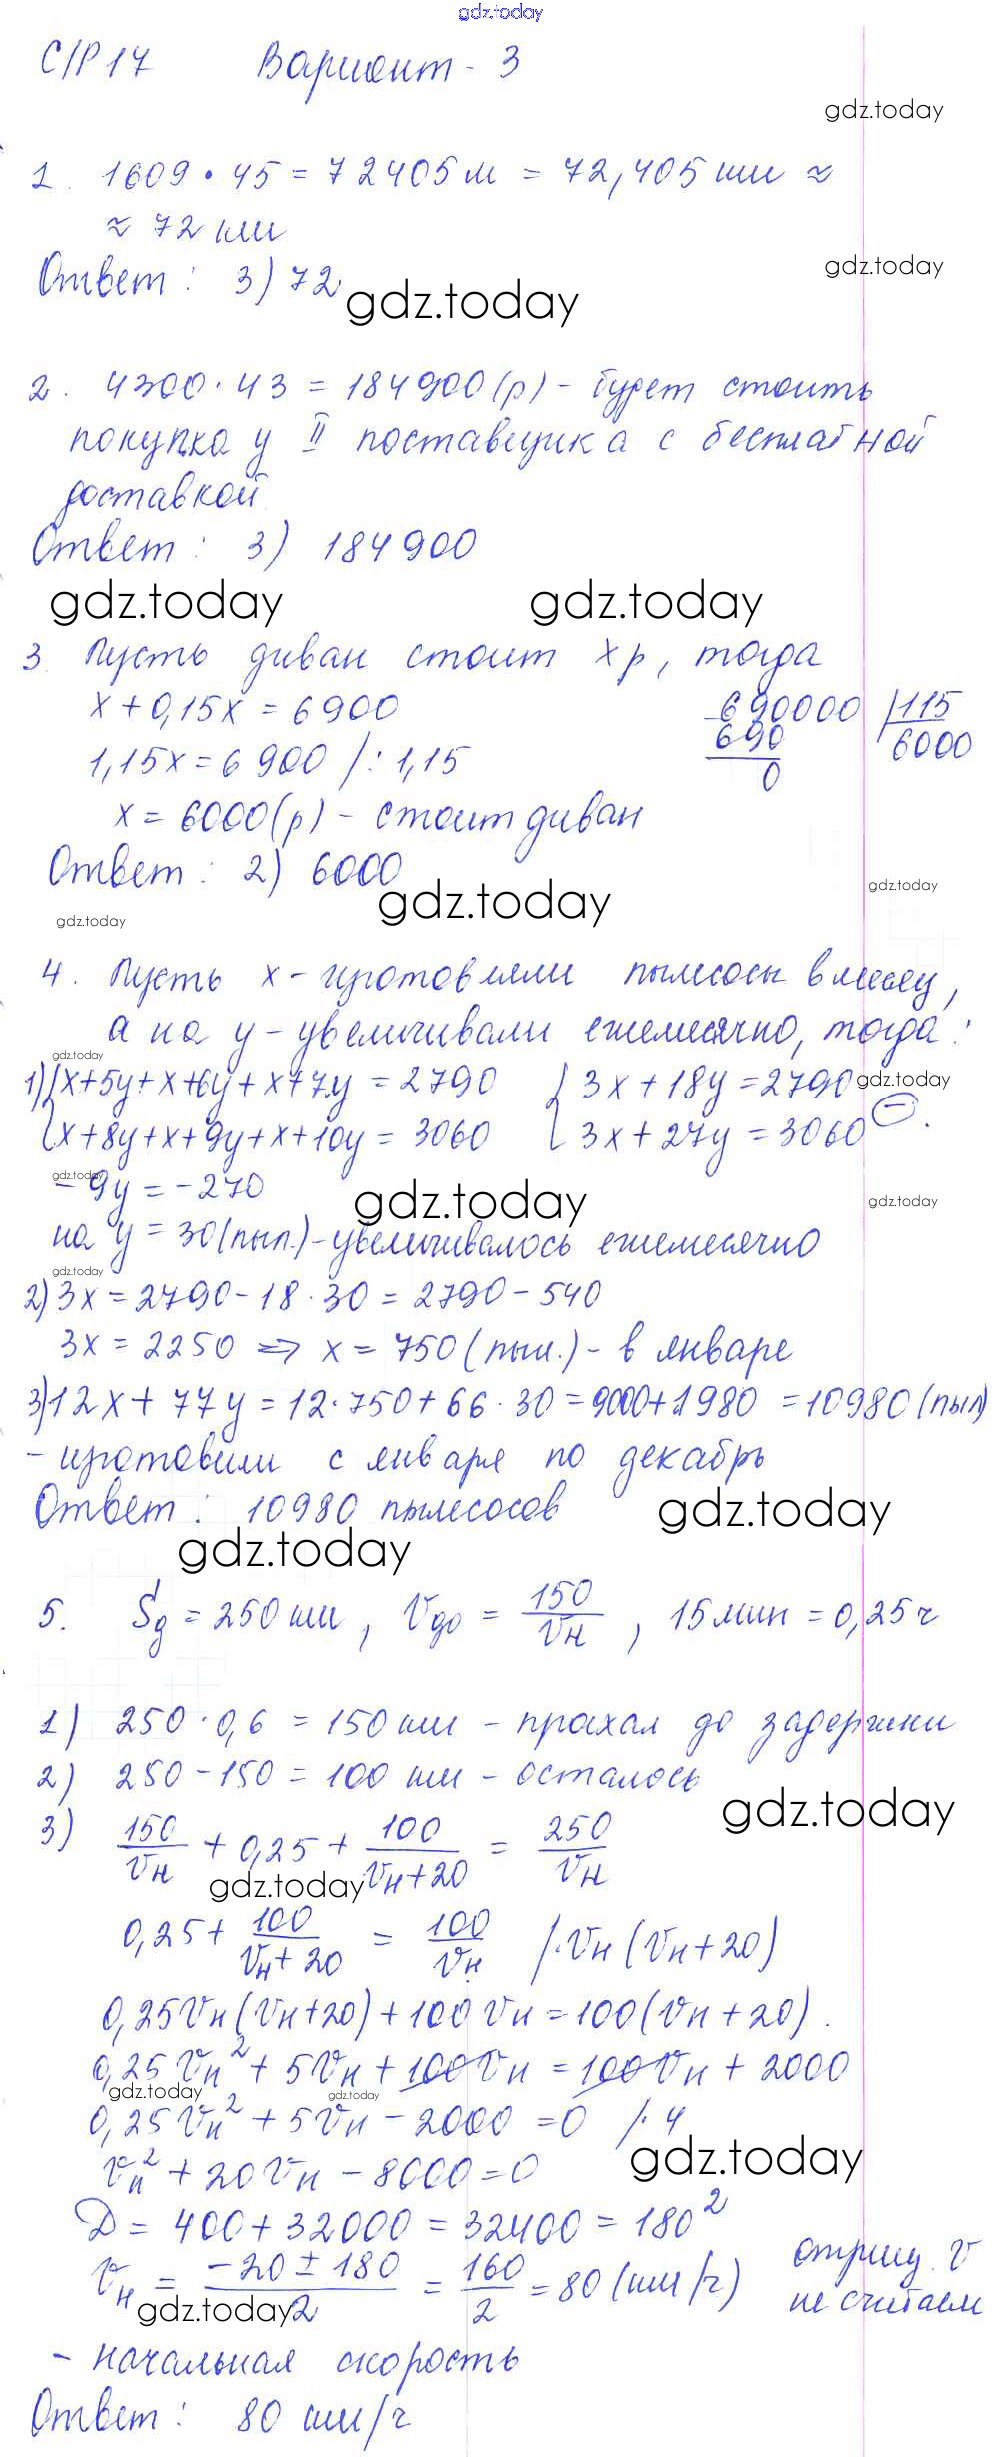 gdz.today
С/Р 17 Вариант - 3
gdz.today
1. 1609 · 45 = 72405 м = 72,405 км ≈
≈ 72 км
gdz.today
Ответ: 3) 72
gdz.today
2. 4300 · 43 = 184900 (р) - будет стоить
покупка у II поставщика с бесплатной
доставкой
Ответ: 3) 184900
gdz.today gdz.today
3. Пусть диван стоит x р, тогда
x + 0,15x = 6900
690000 | 115
1,15x = 6900 /: 1,15
- 690 6000
0
x = 6000 (р) - стоит диван
Ответ: 2) 6000
gdz.today
gdz.today
gdz.today
4. Пусть x - изготовляли пылесосы в месяц,
а на y - увеличивали ежемесячно, тогда:
gdz.today
1) { x+5y+x+6y+x+7y = 2790 { 3x + 18y = 2790
gdz.today
{ x+8y+x+9y+x+10y = 3060 { 3x + 27y = 3060 (-).
gdz.today
-9y = -270
gdz.today
gdz.today
на y = 30 (пыл.) - увеличивалось ежемесячно
gdz.today
2) 3x = 2790 - 18 · 30 = 2790 - 540
3x = 2250 => x = 750 (пыл.) - в январе
3) 12x + 77y = 12·750 + 66·30 = 9000+1980 = 10980 (пыл)
- изготовили с января по декабрь
Ответ: 10980 пылесосов
gdz.today
gdz.today
5. Sд = 250 км, Vдо = 150/Vн, 15 мин = 0,25 ч
1) 250 · 0,6 = 150 км - проехал до задержки
2) 250 - 150 = 100 км - осталось
gdz.today
3) 150/Vн + 0,25 + 100/(Vн+20) = 250/Vн
gdz.today
0,25 + 100/(Vн+20) = 100/Vн /· Vн (Vн+20)
0,25Vн(Vн+20) + 100Vн = 100(Vн+20).
0,25Vн² + 5Vн + 100Vн = 100Vн + 2000
gdz.today gdz.today
0,25Vн² + 5Vн - 2000 = 0 /· 4
gdz.today
Vн² + 20Vн - 8000 = 0
D = 400 + 32000 = 32400 = 180²
Vн = (-20 ± 180)/2 = 160/2 = 80 (км/ч)
отриц. V
не считаем
gdz.today
- начальная скорость
Ответ: 80 км/ч